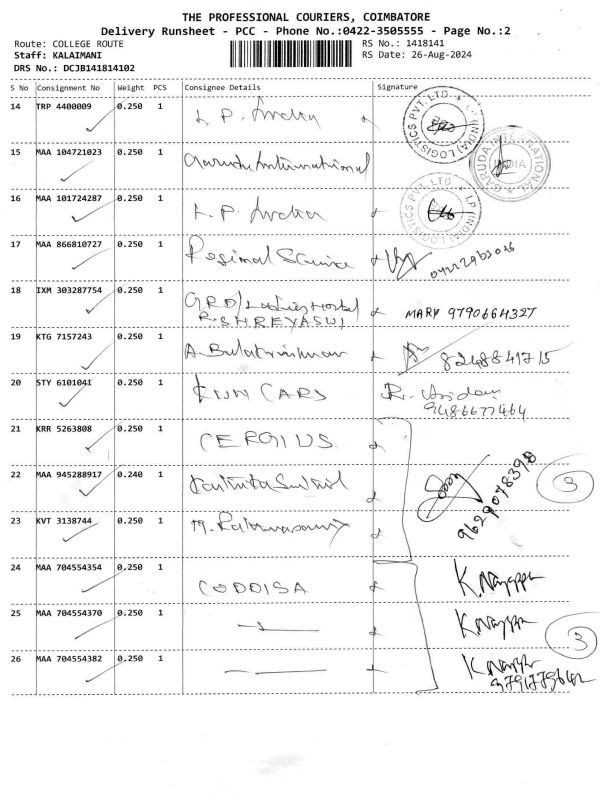 THE PROFESSIONAL COURIERS, COIMBATORE
Delivery Runsheet - PCC - Phone No.:0422-3505555 - Page No.:2
Route: COLLEGE ROUTE RS No.: 1418141
Staff: KALAIMANI RS Date: 26-Aug-2024
DRS No.: DCJB141814102
S No Consignment No Weight PCS Consignee Details Signature
14 TRP 4400009 0.250 1 L.P. India
(INDIA) LOGISTICS PVT. LTD.
15 MAA 104721023 0.250 1 Garuda International
GARUDA INTERNATIONAL INDIA
16 MAA 101724287 0.250 1 L.P. India
LP (INDIA) LOGISTICS PVT. LTD.
17 MAA 866810727 0.250 1 Regional Science
18 IXM 303287754 0.250 1 GRD/Ladies Hostel MARY 9790664327
R. SHREYASWI
19 KTG 7157243 0.250 1 A. Balakrishnan 8248841715
20 STY 6101041 0.250 1 KUN CARS
9486677464
21 KRR 5263808 0.250 1 CERGIUS
22 MAA 945288917 0.240 1 9629078398 3
23 KVT 3138744 0.250 1
24 MAA 704554354 0.250 1 CODDISA K. Nayappa
25 MAA 704554370 0.250 1 K Nayppa 3
26 MAA 704554382 0.250 1